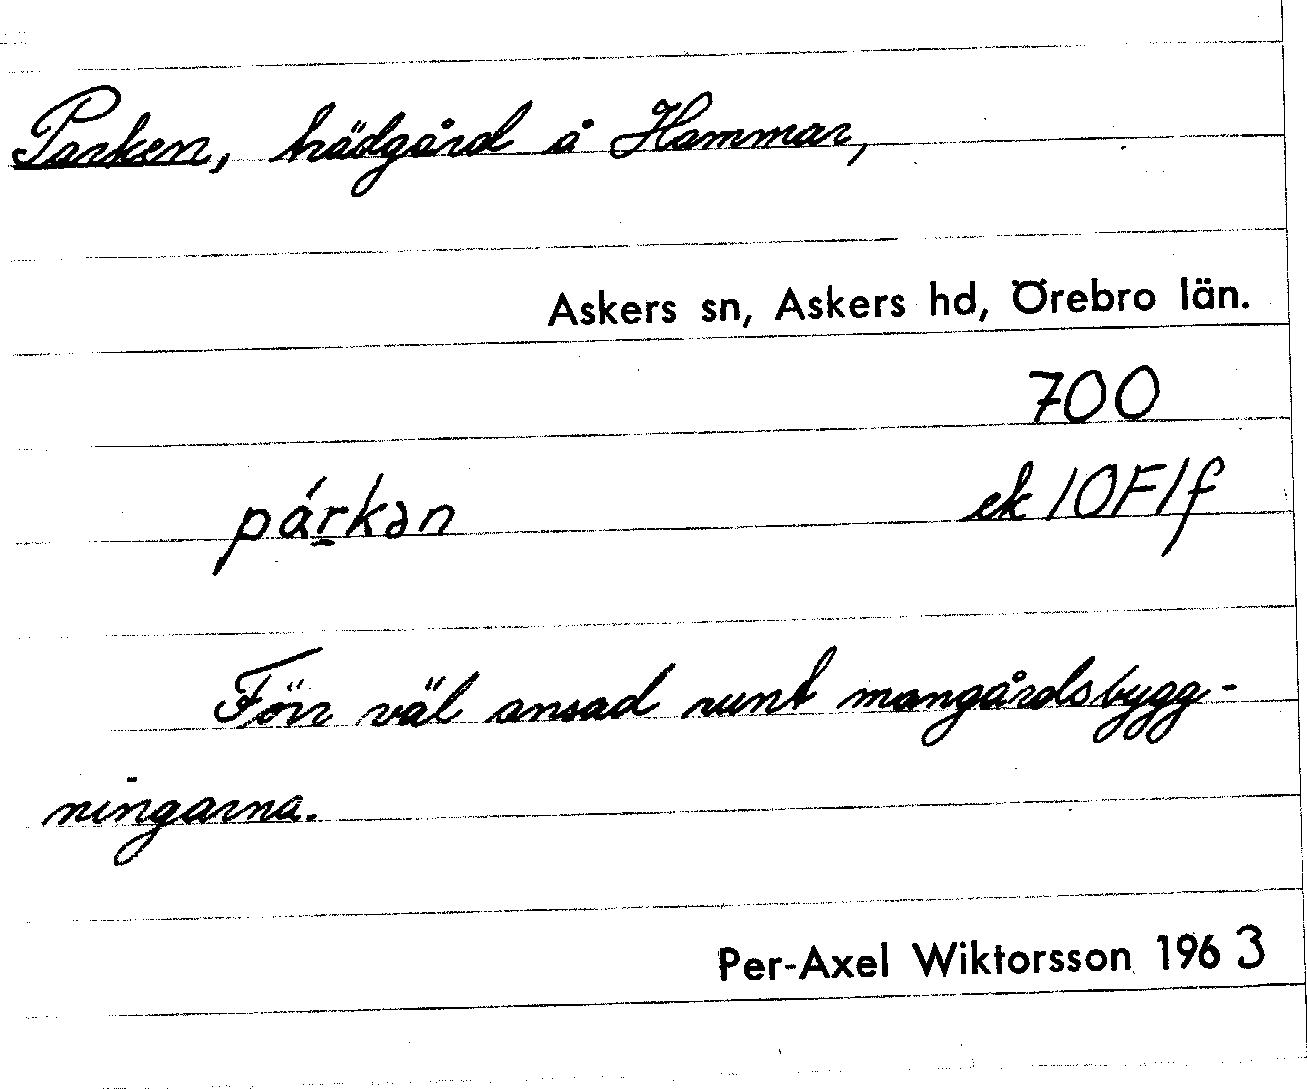 Parken, trädgård å Hammar,
Askers sn, Askers hd, Örebro län.
700
párkən ek 10F1f
Förr väl ansad runt mangårdsbygg-
ningarna.
Per-Axel Wiktorsson 1963